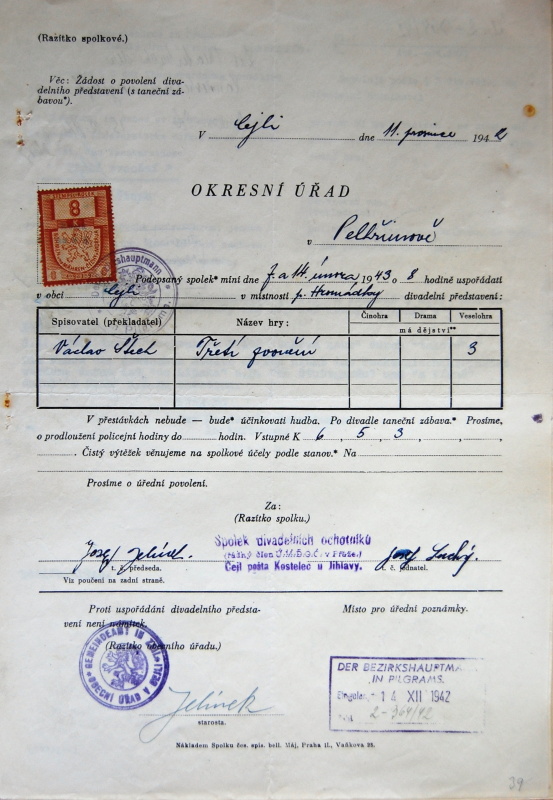 (Razítko spolkové.)
Věc: Žádost o povolení diva-
delního představení (s taneční zá-
bavou*).
V Cejli dne 11. prosince 1942
OKRESNÍ ÚŘAD
v Pelhřimově
8
K
Podepsaný spolek* míní dne 7. a 14. února 1943 o 8 hodině uspořádati
v obci Cejli v místnosti p. Hromádky divadelní představení:
Spisovatel (překladatel) Název hry: Činohra Drama Veselohra
má dějství**
Václav Štech Třetí zvonění 3
V přestávkách nebude — bude* účinkovati hudba. Po divadle taneční zábava.* Prosíme,
o prodloužení policejní hodiny do hodin. Vstupné K 6, 5, 3, , ,
Čistý výtěžek věnujeme na spolkové účely podle stanov.* Na
Prosíme o úřední povolení.
Za:
(Razítko spolku.)
Spolek divadelních ochotníků
(řádný člen Ú.M.D.O.Č. v Praze.)
Cejl pošta Kostelec u Jihlavy.
Josef Jelínek
t. č. předseda.
Josef Suchý.
č. jednatel.
Viz poučení na zadní straně.
Proti uspořádání divadelního představe-
ní není námitek.
(Razítko obecního úřadu.)
Místo pro úřední poznámky.
GEMEINDEAMT IN
OBECNÍ ÚŘAD V CEJLI
Jelínek
starosta.
DER BEZIRKSHAUPTMA
IN PILGRAMS
14 XII 1942
Nákladem Spolku čes. spis. bell. Máj, Praha II., Vaňkova 26.
39